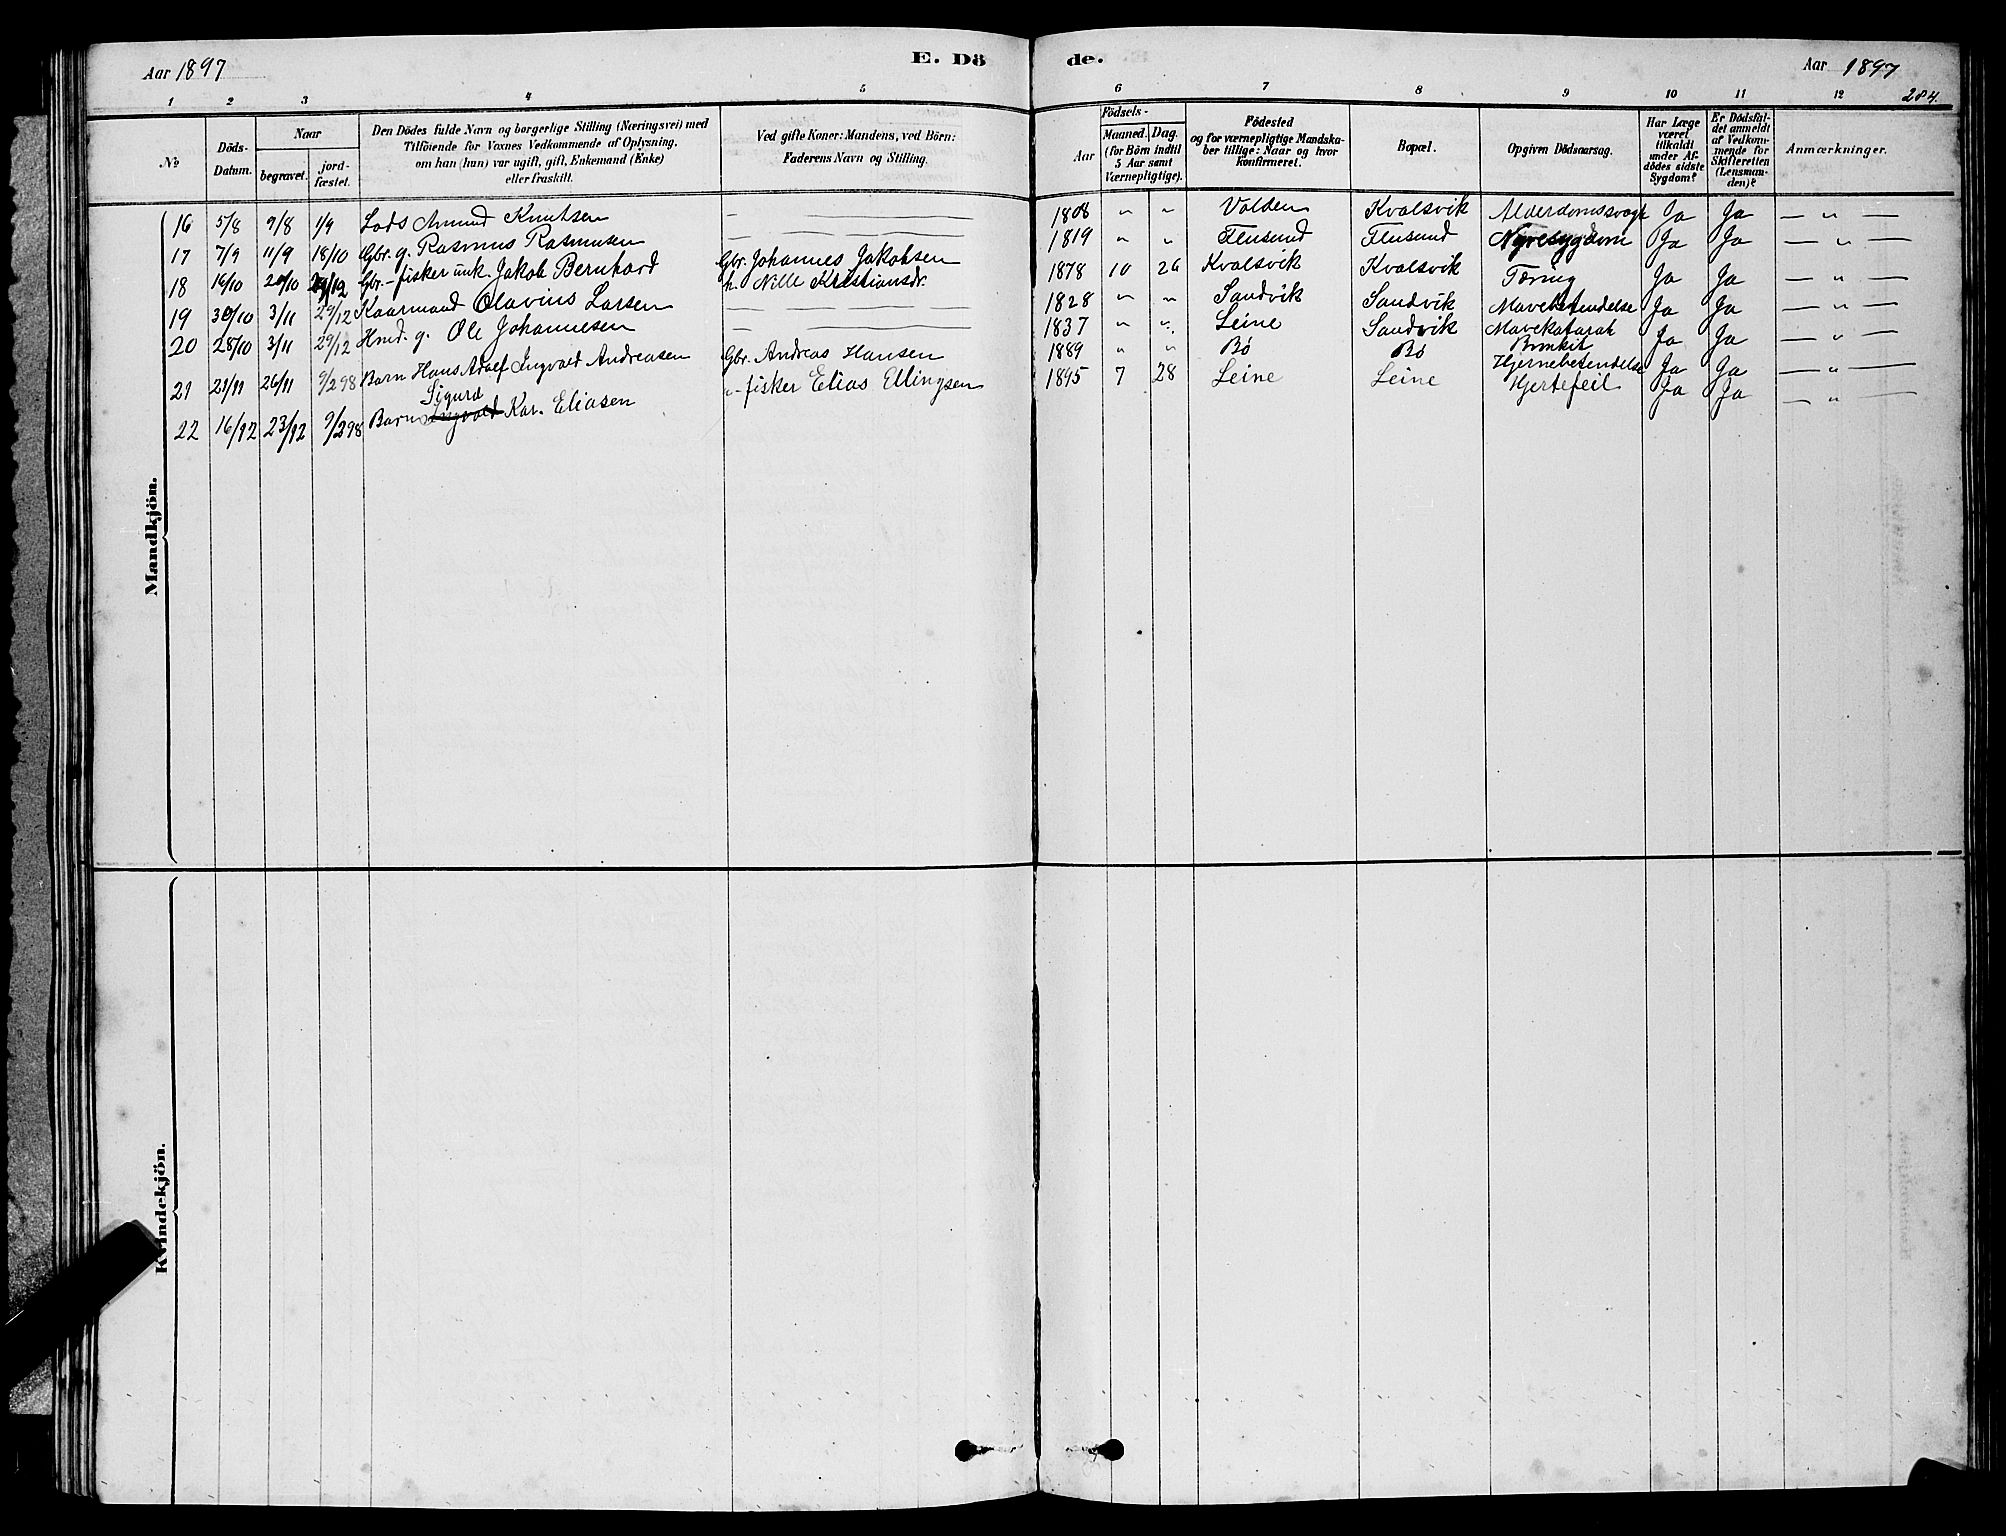 Aar 1897
E. Dö
de.
Aar 1897
284.
1 2 3 4 5 6 7 8 9 10 11 12
№
Döds-
Datum.
Naar
begravet.
jord-
fæstet.
Den Dödes fulde Navn og borgerlige Stilling (Næringsvei) med
Tilföiende for Voxnes Vedkommende af Oplysning,
om han (hun) var ugift, gift, Enkemand (Enke)
eller fraskilt.
Ved gifte Koner: Mandens, ved Börn:
Faderens Navn og Stilling.
Födsels-
Aar
Maaned. Dag.
(for Börn indtil
5 Aar samt
Værnepligtige).
Födested
og for værnepligtige Mandska-
ber tillige: Naar og hvor
konfirmeret.
Bopæl.
Opgiven Dödsaarsag.
Har Læge
været
tilkaldt
under Af-
dödes sidste
Sygdom?
Er Dödsfal-
det anmeldt
af Vedkom-
mende for
Skifteretten
(Lensman-
den)?
Anmærkninger.
Mandkjön.
16 5/8 9/8 1/9 Lods Amund Knutsen — 1808 " " Volden Kvalsvik Alderdomssvagh Ja Ja — " —
17 7/9 11/9 18/10 Gbr. g. Rasmus Rasmusen — 1819 " " Flusund Flusund Nyresygdom Ja Ja — " —
18 16/10 20/10 29/12 Gbr.-fisker unk. Jakob Bernhard Gbr. Johannes Jakobsen 1878 10 26 Kvalsvik Kvalsvik Tæring Ja Ja — " —
h. Nille Kristiansdr.
19 30/10 3/11 29/12 Kaarmand Olavius Larsen — 1828 " " Sandvik Sandvik Mavebetændelse Ja Ja — " —
20 28/10 3/11 29/12 Hmd. g. Ole Johannesen — 1837 " " Leine Sandvik Mavekatarah Ja Ja — " —
21 21/11 26/11 9/2 98 Barn Hans Adolf Ingvald Andreasen Gbr. Andreas Hansen 1889 " " Bø Bø Hjernebetændelse Ja Ja — " —
Sigurd
22 16/12 23/12 9/2 98 Barn Ingvald Kar. Eliasen "-fisker Elias Ellingsen 1895 7 28 Leine Leine Hjertefeil Ja Ja — " —
Kvindekjön.